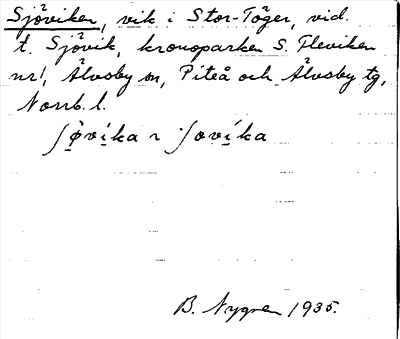 Sjöviken, vik i Stor-Töger, vid.
t. Sjövik, kronoparken S. Fleviken
nr 1, Älvsby sn, Piteå och Älvsby tg,
Norrb. l.
ʃøvika ~ ʃovika
B. Nygren 1935.